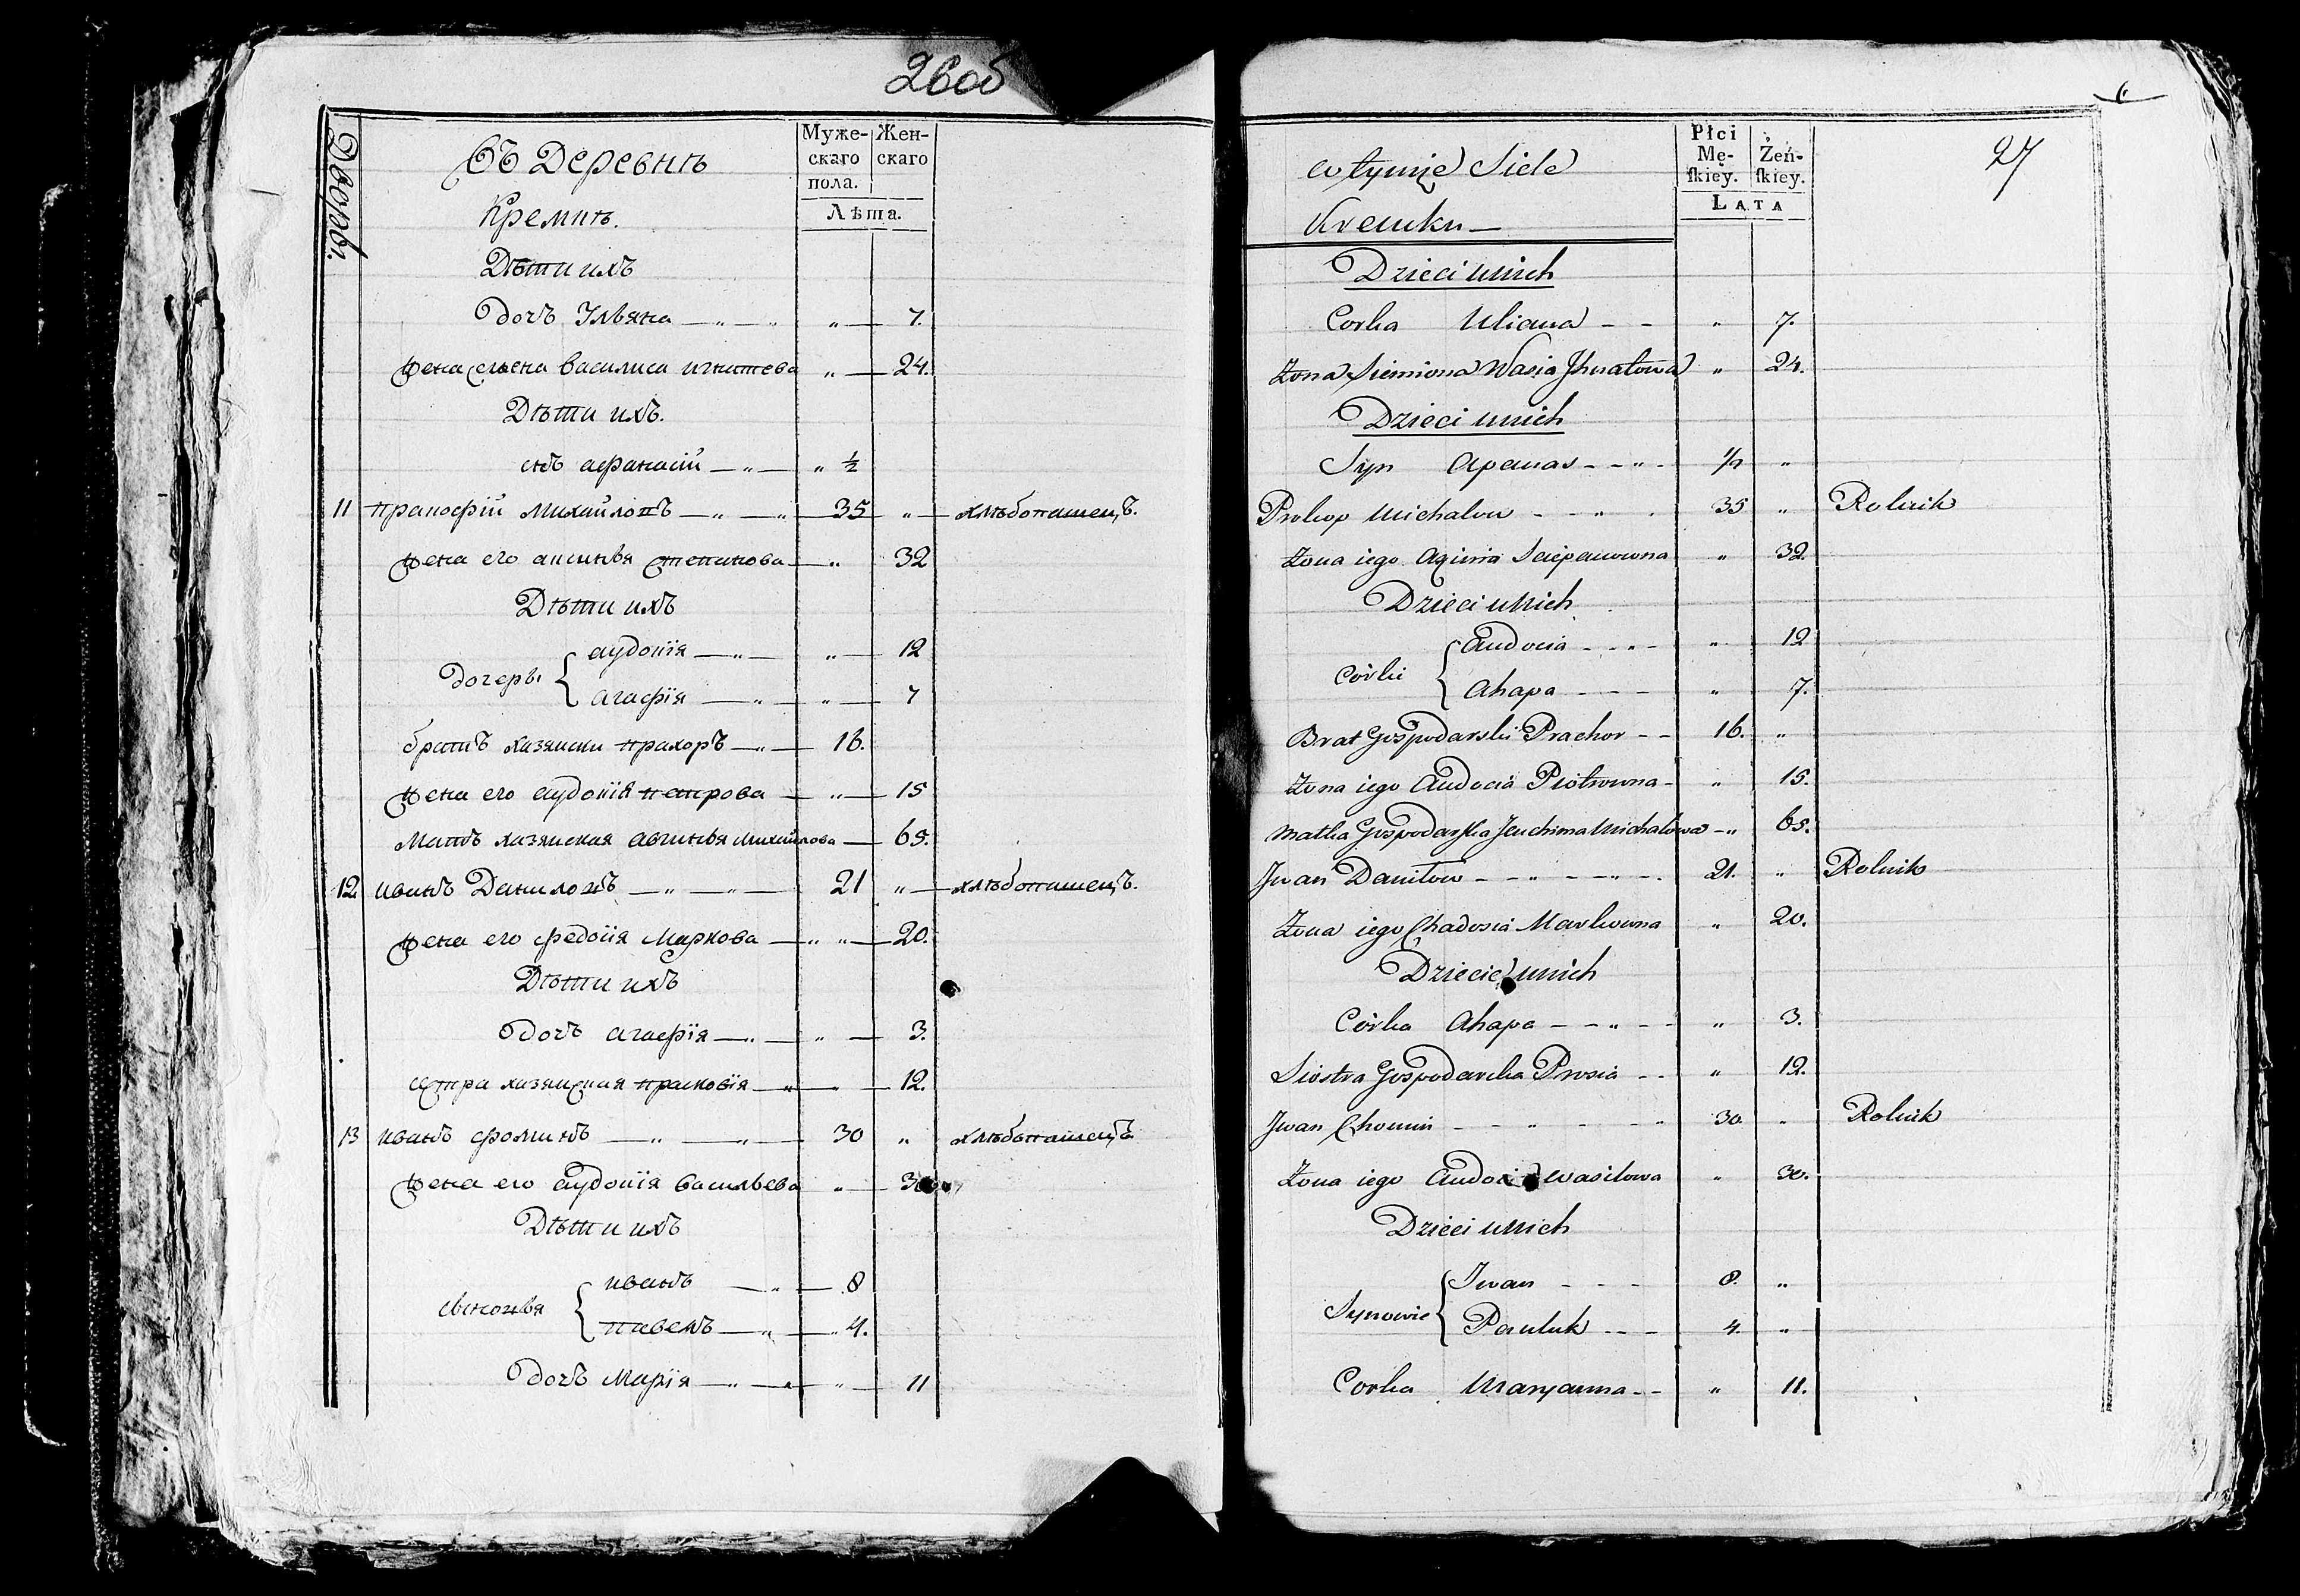 26об
Дворы.
Въ Деревнѣ
Кремнѣ.
Муже-
скаго
пола.
Жен-
скаго
Лѣта.
Дѣти ихъ
дочь Ульяна — „ — „ „ — 7.
жена Василиса „ — 24.
Дѣти ихъ.
снъ афанасій — „ — „ ½
11 Пракофій Михайловъ — „ — „ — 35 „ — хлѣбопашецъ.
жена его аксинья степанова — „ 32
Дѣти ихъ
дочеры { аудокія — „ — „ — 12
агафія — „ — „ — 7
братъ хазяиски прахоръ — „ — 16.
жена его аудокія петрова — „ — 15
Мать хазяиская Михайлова — 65.
12 иванъ Даниловъ — „ — „ — 21 „ — хлѣбопашецъ.
жена его федосія Маркова — „ „ — 20.
Дѣти ихъ
дочъ агафія — „ — „ — 3.
сестра хазяиская прасковія — „ — 12.
13 иванъ фоминъ — „ — „ — 30 „ хлѣбопашецъ
жена его аудокія васильева „ — 30
Дѣти ихъ
сыновья { иванъ — „ — 8
павелъ — „ — „ 4.
дочъ Марія — „ — „ — 11
27
w tymże Siele
Kremku —
Płci
Mę-
ſkiey.
Żeń-
ſkiey.
LATA
Dzieci unich
Corka Uliana - - „ 7.
Żona Siemiona Wasia Jhnatowa „ 24.
Dzieci unich
Syn Apanas - - „ - ½ „
Prokop Michalow - - „ - 35 „ Rolnik
Żona iego Axinia Sciepanowna „ 32.
Dzieci unich
Córki { Audocia - - „ - „ 12
Ahapa - - - „ 7.
Brat Gospodarski Prachor - - 16. „
Żona iego Audocia Piotrowna - „ 15.
Matka Gospodarska Michałowa - „ 65.
Jwan Daniłow - - „ - - „ - . 21. „ Rolnik
Żona iego Chadosia Markowna „ 20.
Dziecie unich
Córka Ahapa - - „ - - „ 3.
Siostra Gospodarska Prosia - - „ 12.
Jwan Chomin - - „ - - „ 30. „ Rolnik
Żona iego Audocia wasilowa „ 30.
Dzieci unich
Synowie { Jwan - - - 8. „
Pauluk - - - 4. „
Corka Maryanna - - „ 11.